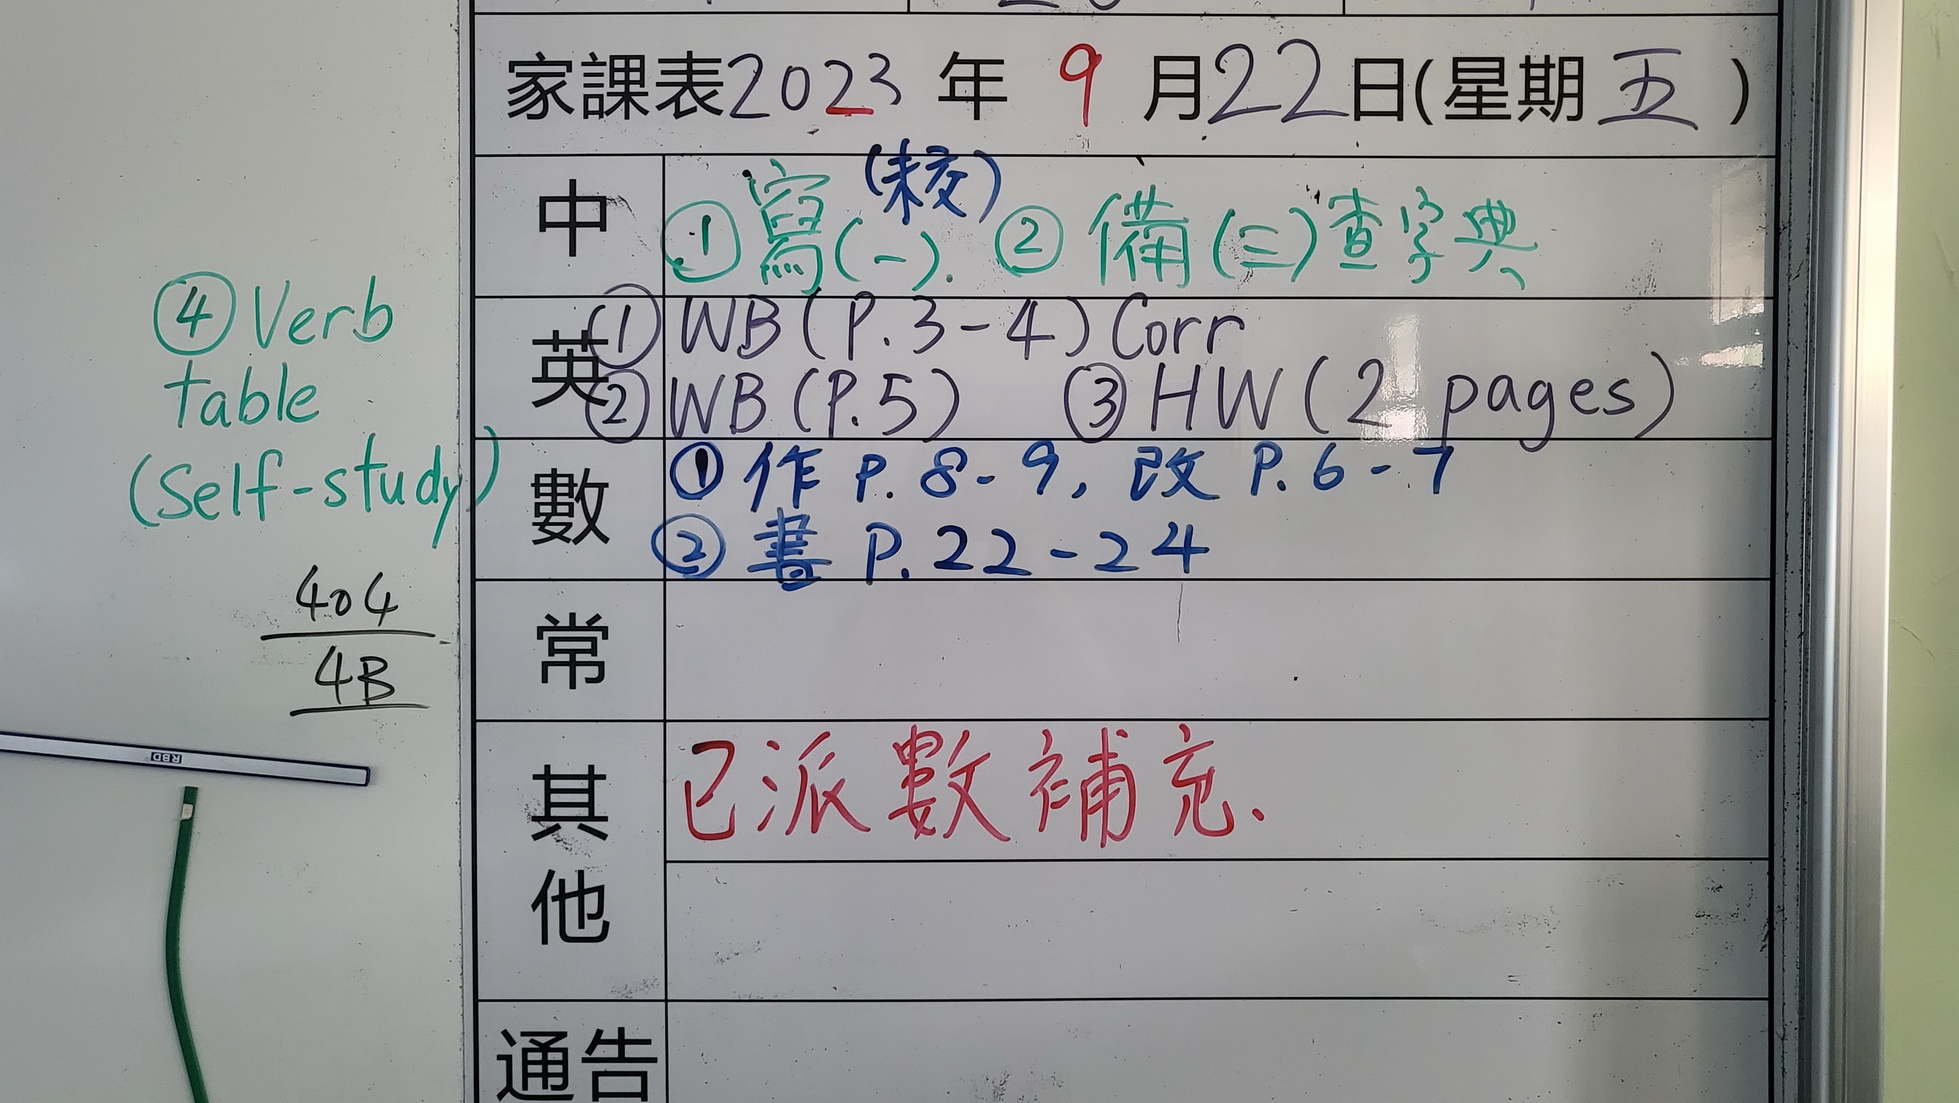 家課表2023年9月22日(星期五)
中
(校)
①寫(一). ②備(三)查字典
英
①WB(P.3-4)Corr
②WB(P.5) ③HW(2 pages)
④Verb
table
(Self-study)
數
①作 P.8-9, 改 P.6-7
②書 P.22-24
404
4B
常
其他
已派數補充.
通告